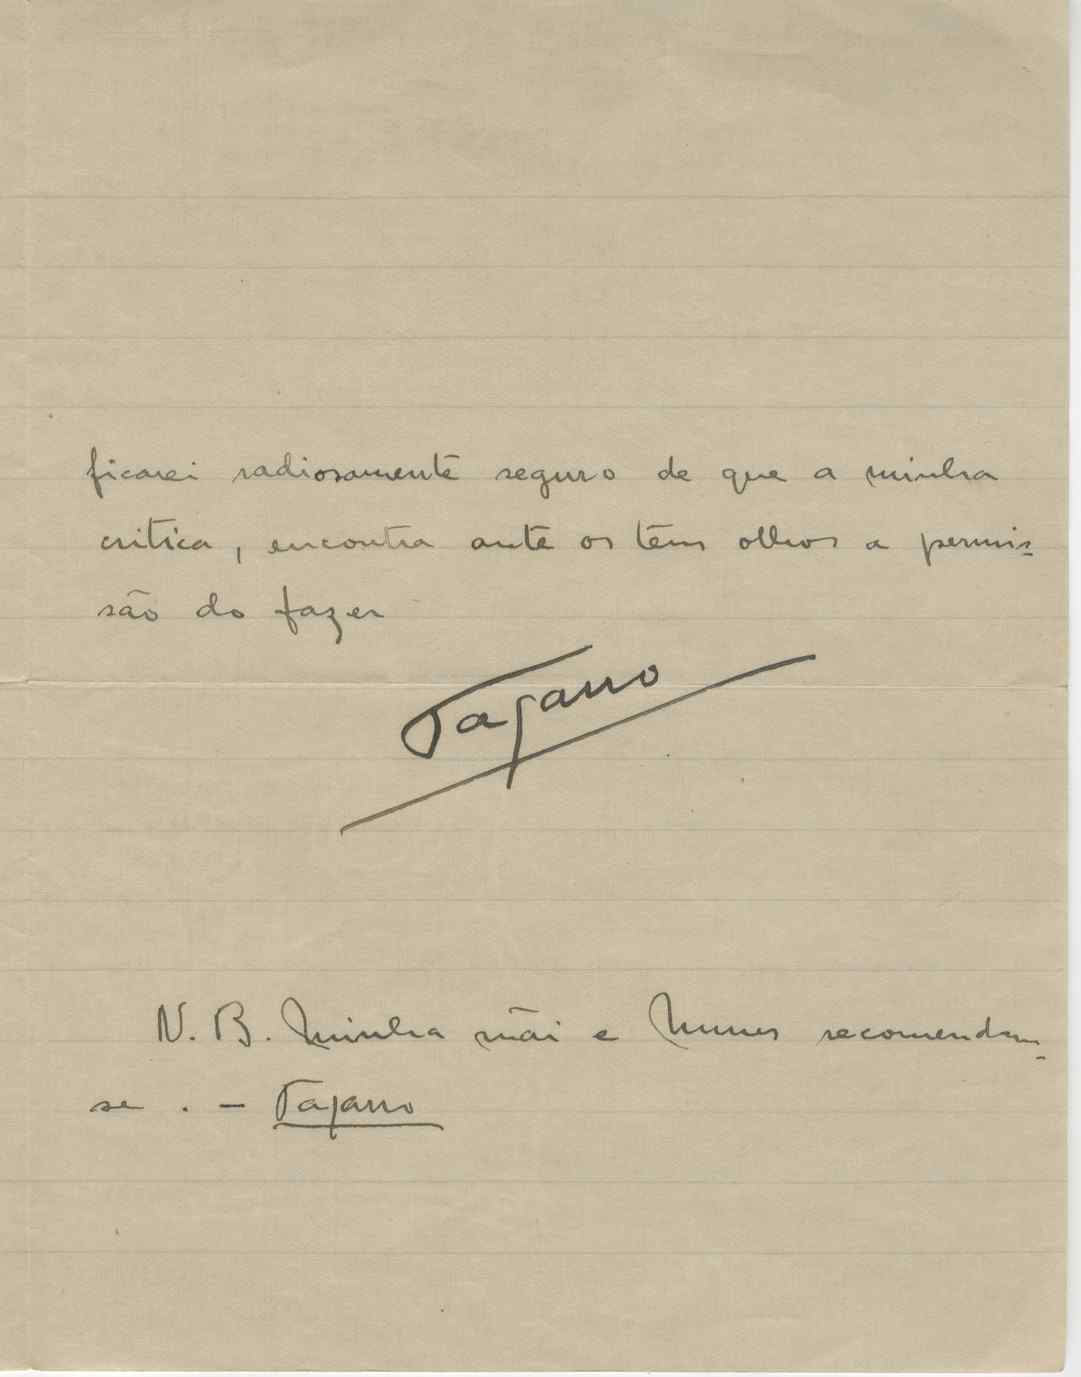 ficarei radiosamente seguro de que a minha
critica, encontra ante os têus olhos a permis-
são do fazer
Tagarro
N. B. Minha mãi e Nunes recomendam-
se . - Tagarro